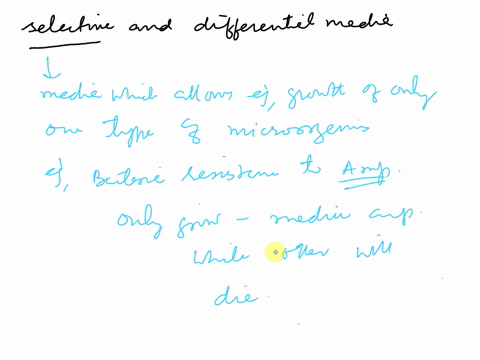 selective and differential media
media which allows eg, growth of only
one type of microorgenis
eg, Bacteria resistance to Amp.
only grow - media amp.
while other will
die.